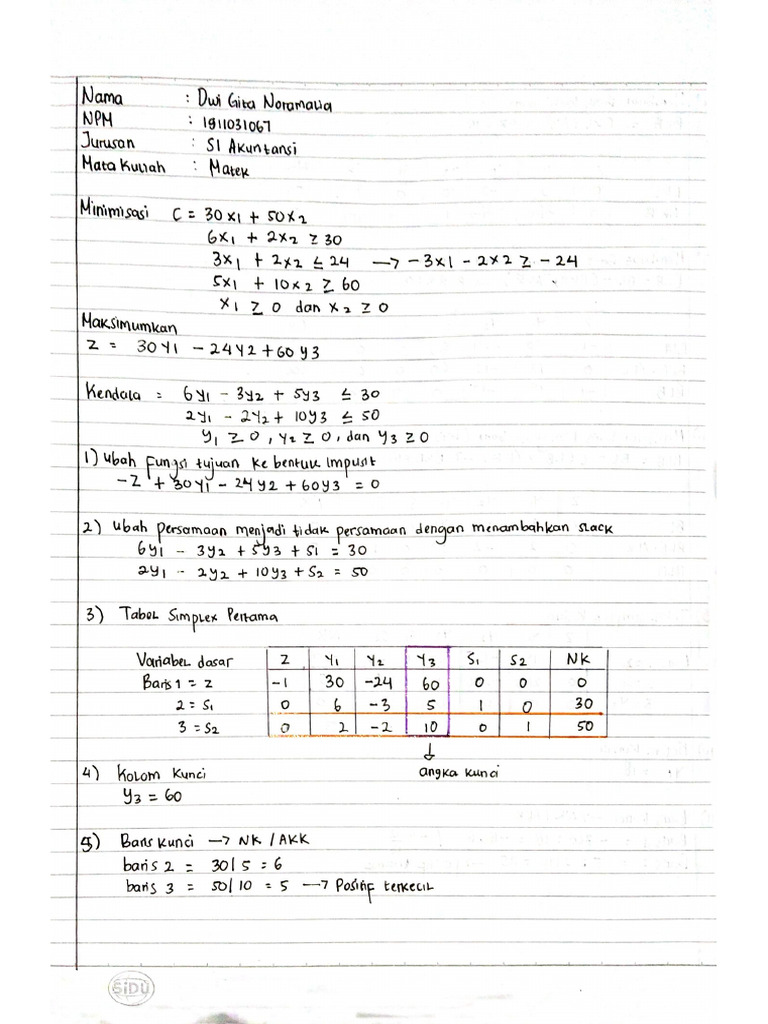 Nama : Dwi Gita Noramalia
NPM : 1911031067
Jurusan : S1 Akuntansi
Mata Kuliah : Matek
Minimisasi C = 30x1 + 50x2
6x1 + 2x2 ≥ 30
3x1 + 2x2 ≤ 24 → -3x1 - 2x2 ≥ -24
5x1 + 10x2 ≥ 60
x1 ≥ 0 dan x2 ≥ 0
Maksimumkan
Z = 30Y1 - 24Y2 + 60Y3
Kendala = 6y1 - 3y2 + 5y3 ≤ 30
2y1 - 2y2 + 10y3 ≤ 50
y1 ≥ 0, y2 ≥ 0, dan y3 ≥ 0
1) Ubah Fungsi tujuan ke bentuk Impusit
-Z + 30y1 - 24y2 + 60y3 = 0
2) Ubah persamaan menjadi tidak persamaan dengan menambahkan slack
6y1 - 3y2 + 5y3 + S1 = 30
2y1 - 2y2 + 10y3 + S2 = 50
3) Tabel Simplex Pertama
Variabel dasar Z Y1 Y2 Y3 S1 S2 NK
Baris 1 = Z -1 30 -24 60 0 0 0
2 = S1 0 6 -3 5 1 0 30
3 = S2 0 2 -2 10 0 1 50
angka kunci
4) Kolom Kunci
Y3 = 60
5) Baris Kunci → NK / AKK
baris 2 = 30/5 = 6
baris 3 = 50/10 = 5 → Positif terkecil
SiDU